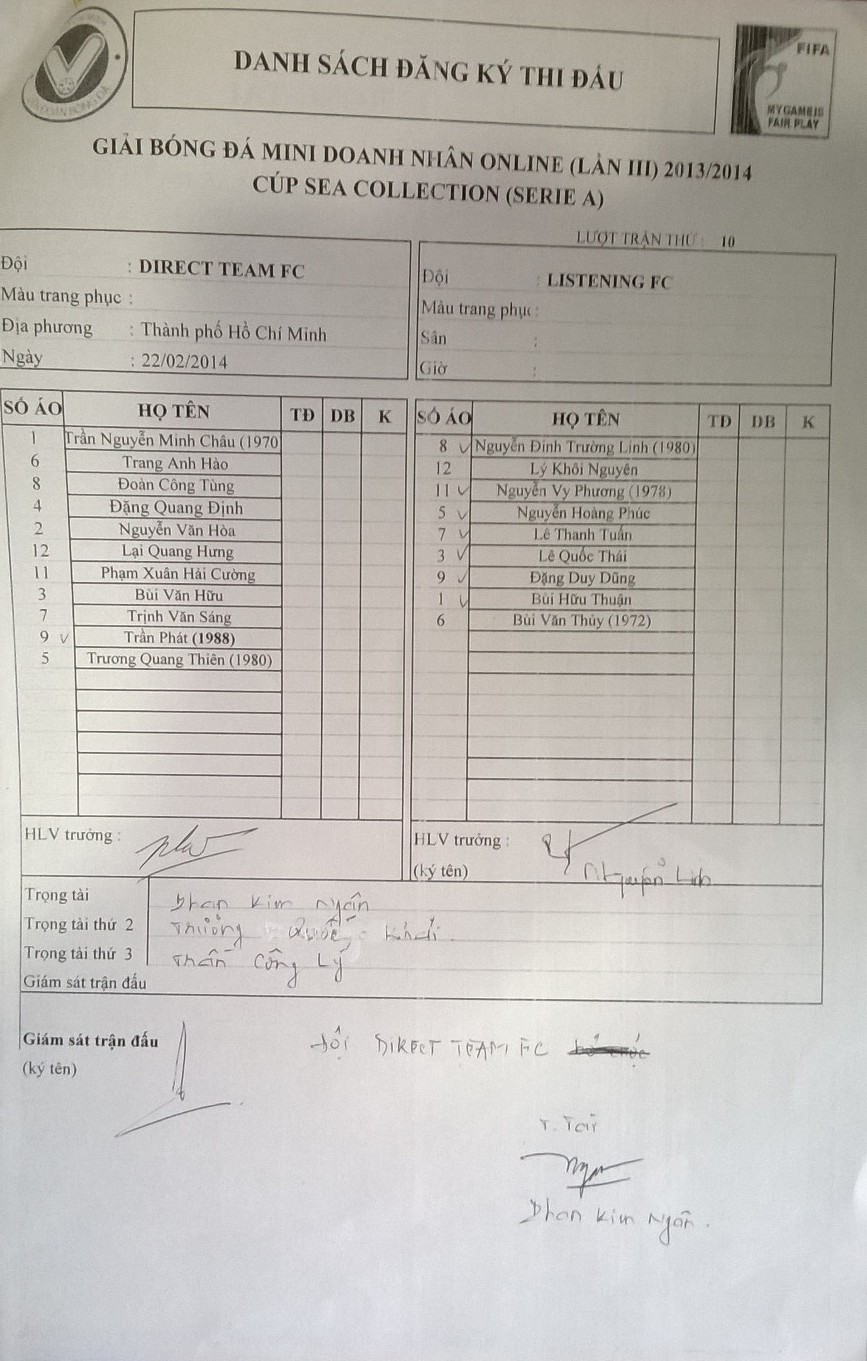 DANH SÁCH ĐĂNG KÝ THI ĐẤU
FIFA
MY GAME IS
FAIR PLAY
GIẢI BÓNG ĐÁ MINI DOANH NHÂN ONLINE (LẦN III) 2013/2014
CÚP SEA COLLECTION (SERIE A)
LƯỢT TRẬN THỨ : 10
Đội : DIRECT TEAM FC
Màu trang phục :
Địa phương : Thành phố Hồ Chí Minh
Ngày : 22/02/2014
Đội : LISTENING FC
Màu trang phục :
Sân :
Giờ :
SỐ ÁO HỌ TÊN TĐ DB K
1 Trần Nguyễn Minh Châu (1970
6 Trang Anh Hào
8 Đoàn Công Tùng
4 Đặng Quang Định
2 Nguyễn Văn Hòa
12 Lại Quang Hưng
11 Phạm Xuân Hải Cường
3 Bùi Văn Hữu
7 Trịnh Văn Sáng
9 V Trần Phát (1988)
5 Trương Quang Thiên (1980)
SỐ ÁO HỌ TÊN TĐ DB K
8 V Nguyễn Đình Trường Linh (1980)
12 Lý Khôi Nguyên
11 V Nguyễn Vy Phương (1978)
5 V Nguyễn Hoàng Phúc
7 V Lê Thanh Tuấn
3 V Lê Quốc Thái
9 V Đặng Duy Dũng
1 V Bùi Hữu Thuận
6 Bùi Văn Thủy (1972)
HLV trưởng :
HLV trưởng :
(ký tên)
Nguyễn Linh
Trọng tài Phan Kim Ngân
Trọng tài thứ 2 Quốc Khái
Trọng tài thứ 3 Trần Công Lý
Giám sát trận đấu
Giám sát trận đấu
(ký tên)
đội DIRECT TEAM FC
T. Tài
Phan Kim Ngân.